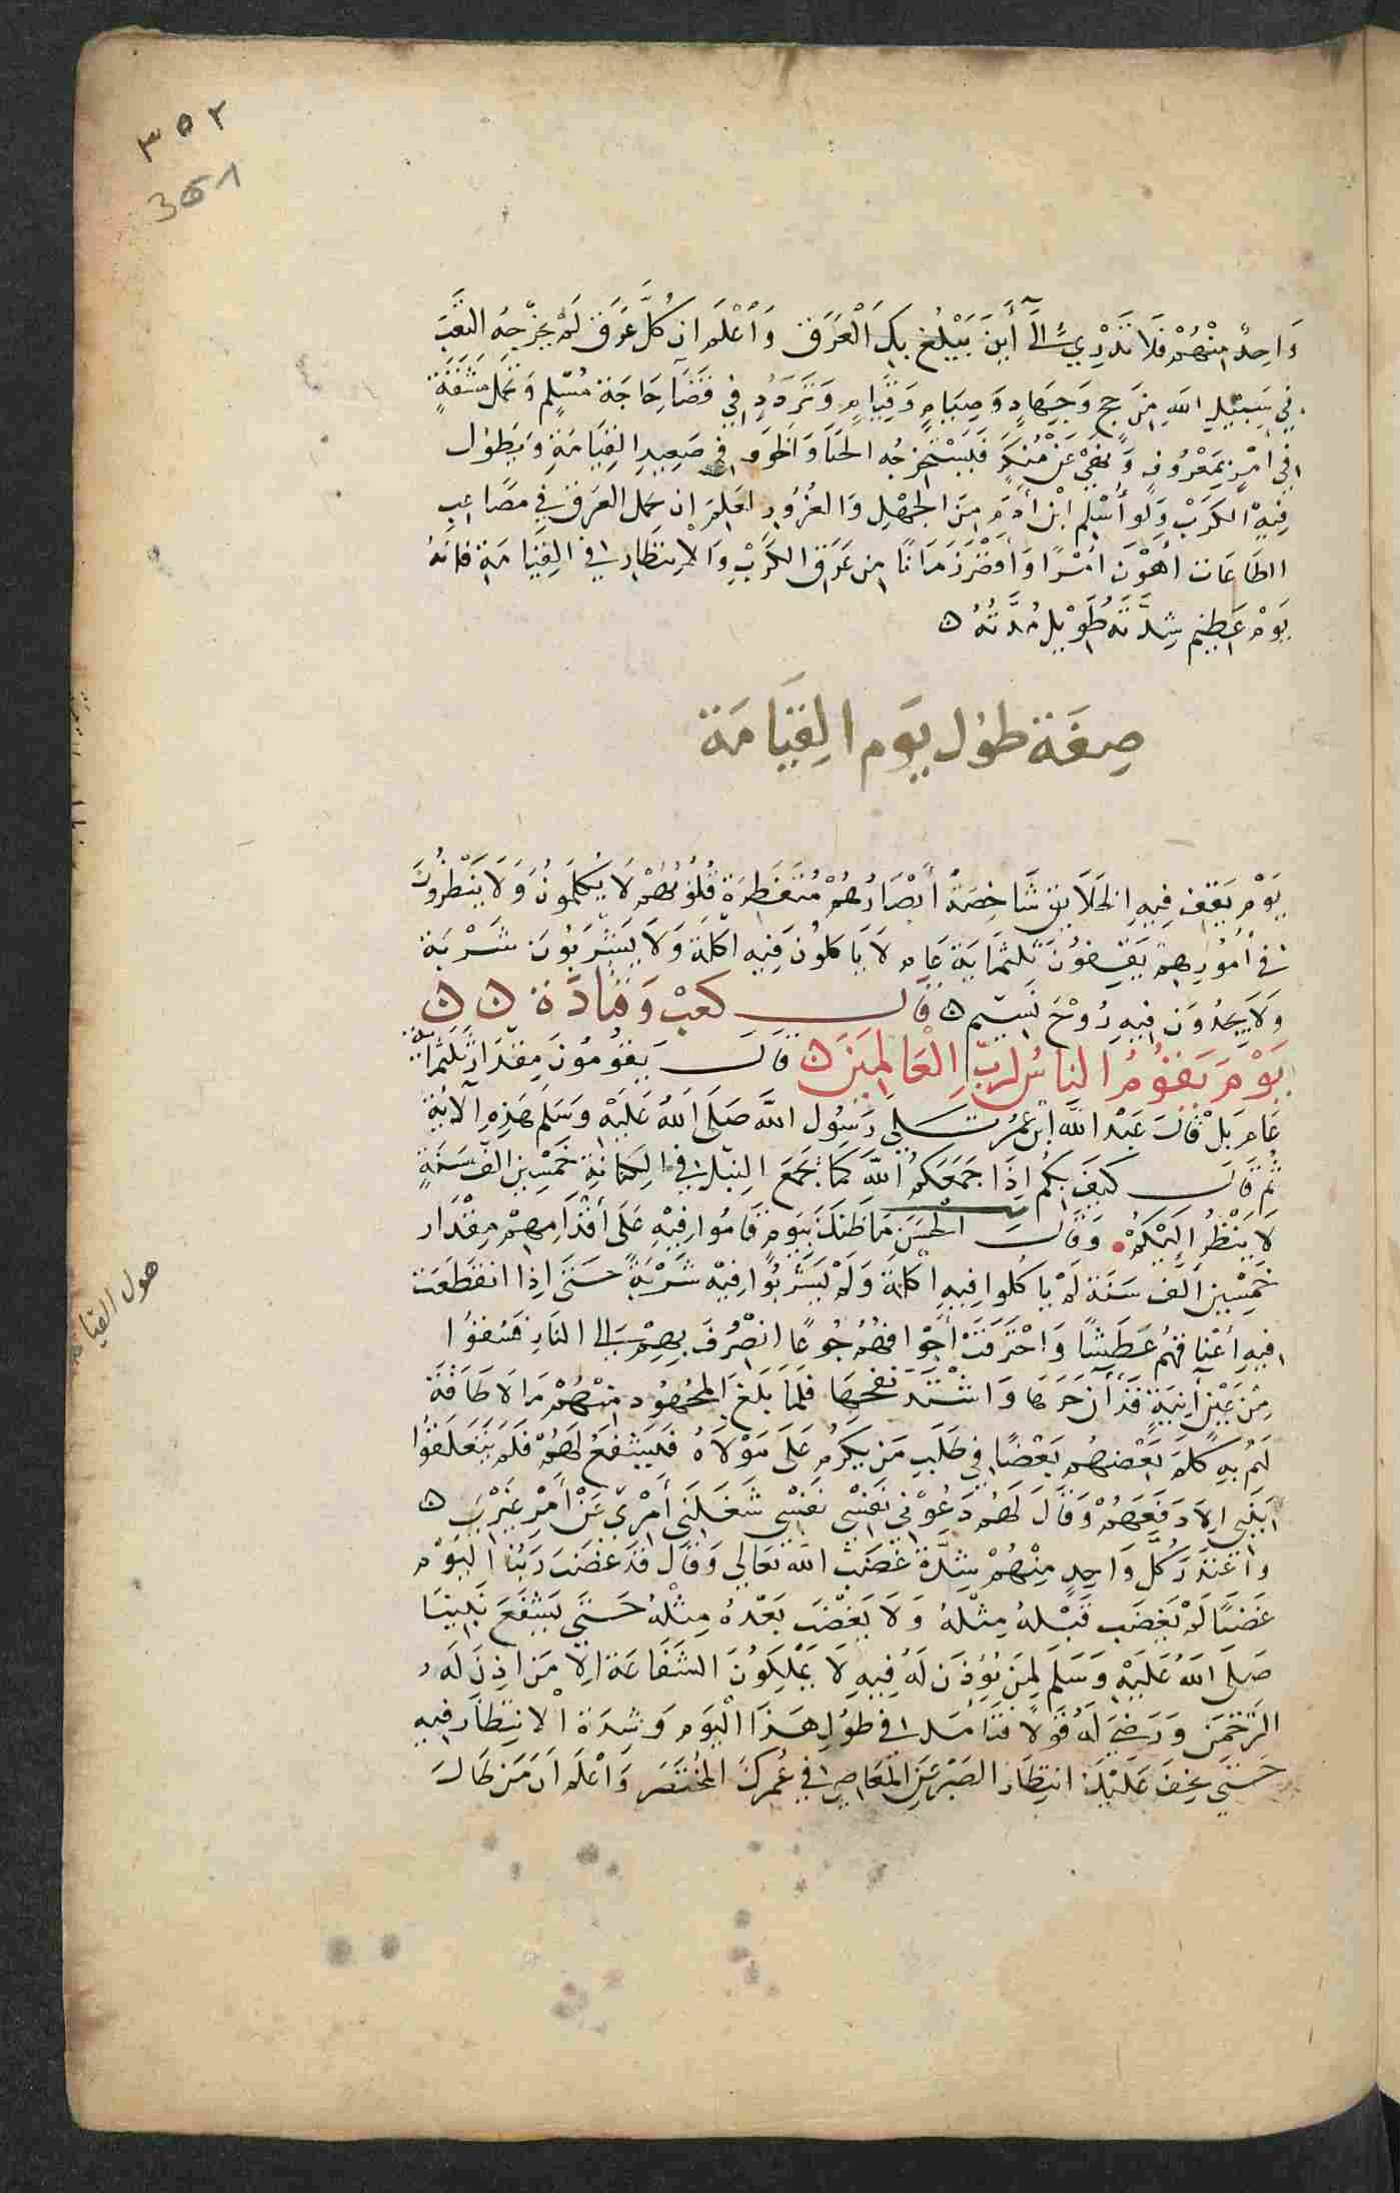 ٣٥٢
351
وَاحِدٌ مِنْهُمْ فَلَا تَدْرِي إِلَى أَيْنَ يَبْلُغ بِكَ الْعَرَق وَاعْلَم ان كُلَّ عَرَق لَمْ يخرجه التعَب
فِي سَبِيْلِ الله مِن حج وَجِهَادٍ وَصِيَامٍ وَقِيَامٍ وَتَرَدُدٍ فِي قضَا حَاجَة مُسْلِم وَتحمل مشقةٍ
فِي امْرٍ بِمَعْرُوفٍ وَنهي عَنْ مُنكَر فَيَسْتخرجُه الحيَا وَالخوف في صَعِيدِ القِيَامَةِ وَيَطول
فِيهِ الكَرَبْ وَلَو أسْلم ابْن أدَم مِنَ الجهْلِ وَالغُرُور لعَلِمَ ان تحمل العَرَق فِي مصَاعِب
الطَاعَات أهْوَن امْرًا وَأقصَر زَمَانًا مِن عَرَق الكَرَبْ وَالانتظار في القِيَامَة فانهُ
يَوْم عَظِيم شِدَّته طَوِيل مُدَّتُهُ ه
صِفَة طول يَوَم القِيَامَة
يَوْم يَقِف فِيهِ الخَلَايق شَاخِصَةً أبْصَارُهُمْ مُتفَطِرَة قُلُوبُهُمْ لَا يُكَلمَونُ وَلَا يَنْظرُونَ
في أمُورِهِم يَقفونَ ثلثمَايَة عَام لَا يَاكلونَ فِيه أكلَة وَلَا يَشْرَبُونَ شَرْبَة
وَلَا يَجِدُونَ فِيهِ رُوْحَ نَسِيْم ه قال كعبْ وَقتادَة ه ه
يَوْمَ يَقُوُمُ الناسُ لِرَبِّ الْعَالمِيَنَ ه قالَ يَقُومُونَ مِقدَار ثلثمائة
عَام بَلْ قالَ عَبْد اللَّه ابْن عُمَر تلي رَسُول اللَّه صَلَى اللهُ عَلَيْه وَسَلمَ هَذِهِ الايَةَ
ثُم قالَ كَيَف بِكُم اِذَا جَمَعَكُمُ اللَّه كمَا يجمَع النبل في الكنانةِ خَمْسِين الفَ سَنَةٍ
لَا يَنْظُرُ اِلَيْكُمْ. وَقَالَ الحَسَن مَا ظنكَ بيَومٍ قَامُوا فِيْهِ عَلَى أقْدَامِهِمْ مِقدَار
خَمْسِين ألف سَنَة لَمْ يا كُلوا فِيهِ اكلةَ وَلَمْ يَشْرَبُوا فِيْه شَرْبَةً حَتَى اِذا انقَطَعَت
فِيهِ أعْنا قهُم عَطشًا وَاحْتَرَقَتْ أجْوَافهُمْ جُوعًا انْصُرفَ بِهِمْ اِلى النَارِ فسُقوُا
مِنْ عَيْن أنِيَةٍ قَدْ أن حَرهَا وَاشتَدّ نفحهَا فلمَّا بَلَغ المجْهُود مِنْهُمْ مَا لا طَاقة
لَهُمْ بِهِ كلمَ بَعْضهُم بَعْضًا فِي طَلَبِ مَن يَكرم عَلَى مَوْلَاهُ فَلَيَشفَعَُ لهُمْ فَلم يَتعَلقوُا
بنَبِي اِلا دَفعَهُمْ وَقَالَ لَهُم دَعُوْني نَفْسْي نَفْسْي شَغَلنِي أمْرِي عَنْ أمْرِ غَيْرِي ه
وَاعْتذَرَ كل وَاحِدٍ مِنْهُمْ بشِدَّة غَضَبِ اللَّه تعَالي وَقال قد غضِبَ رَبُنا اليَوْم
غضَبًا لمْ يَغضَب قَبْلهُ مِثْلهُ وَلَا يَغضَب بَعْدهُ مِثْلُهُ حَتَي يَشفَعَ نَبِيِّنَا
صَلَى اللهُ عَلَيْهِ وَسَلمَ لِمَن يُؤذَن لَهُ فِيهِ لَا يَملِكونَ الشَفاعَة اِلا مَن اذِنَ لَه
الرَّحْمَن وَرَضِيَ لَهُ قَوْلًا فتَامل في طوُلِ هَذا اليَوم وَشِدَة الانتِظار فيهِ
حَتي يخفَ عَلَيْك انتِظَار الصَبْر عَن المعَاصي في عُمرِكَ المخُتَصَر وَاعْلَم اَن مَن طَالَ
هول القيامة